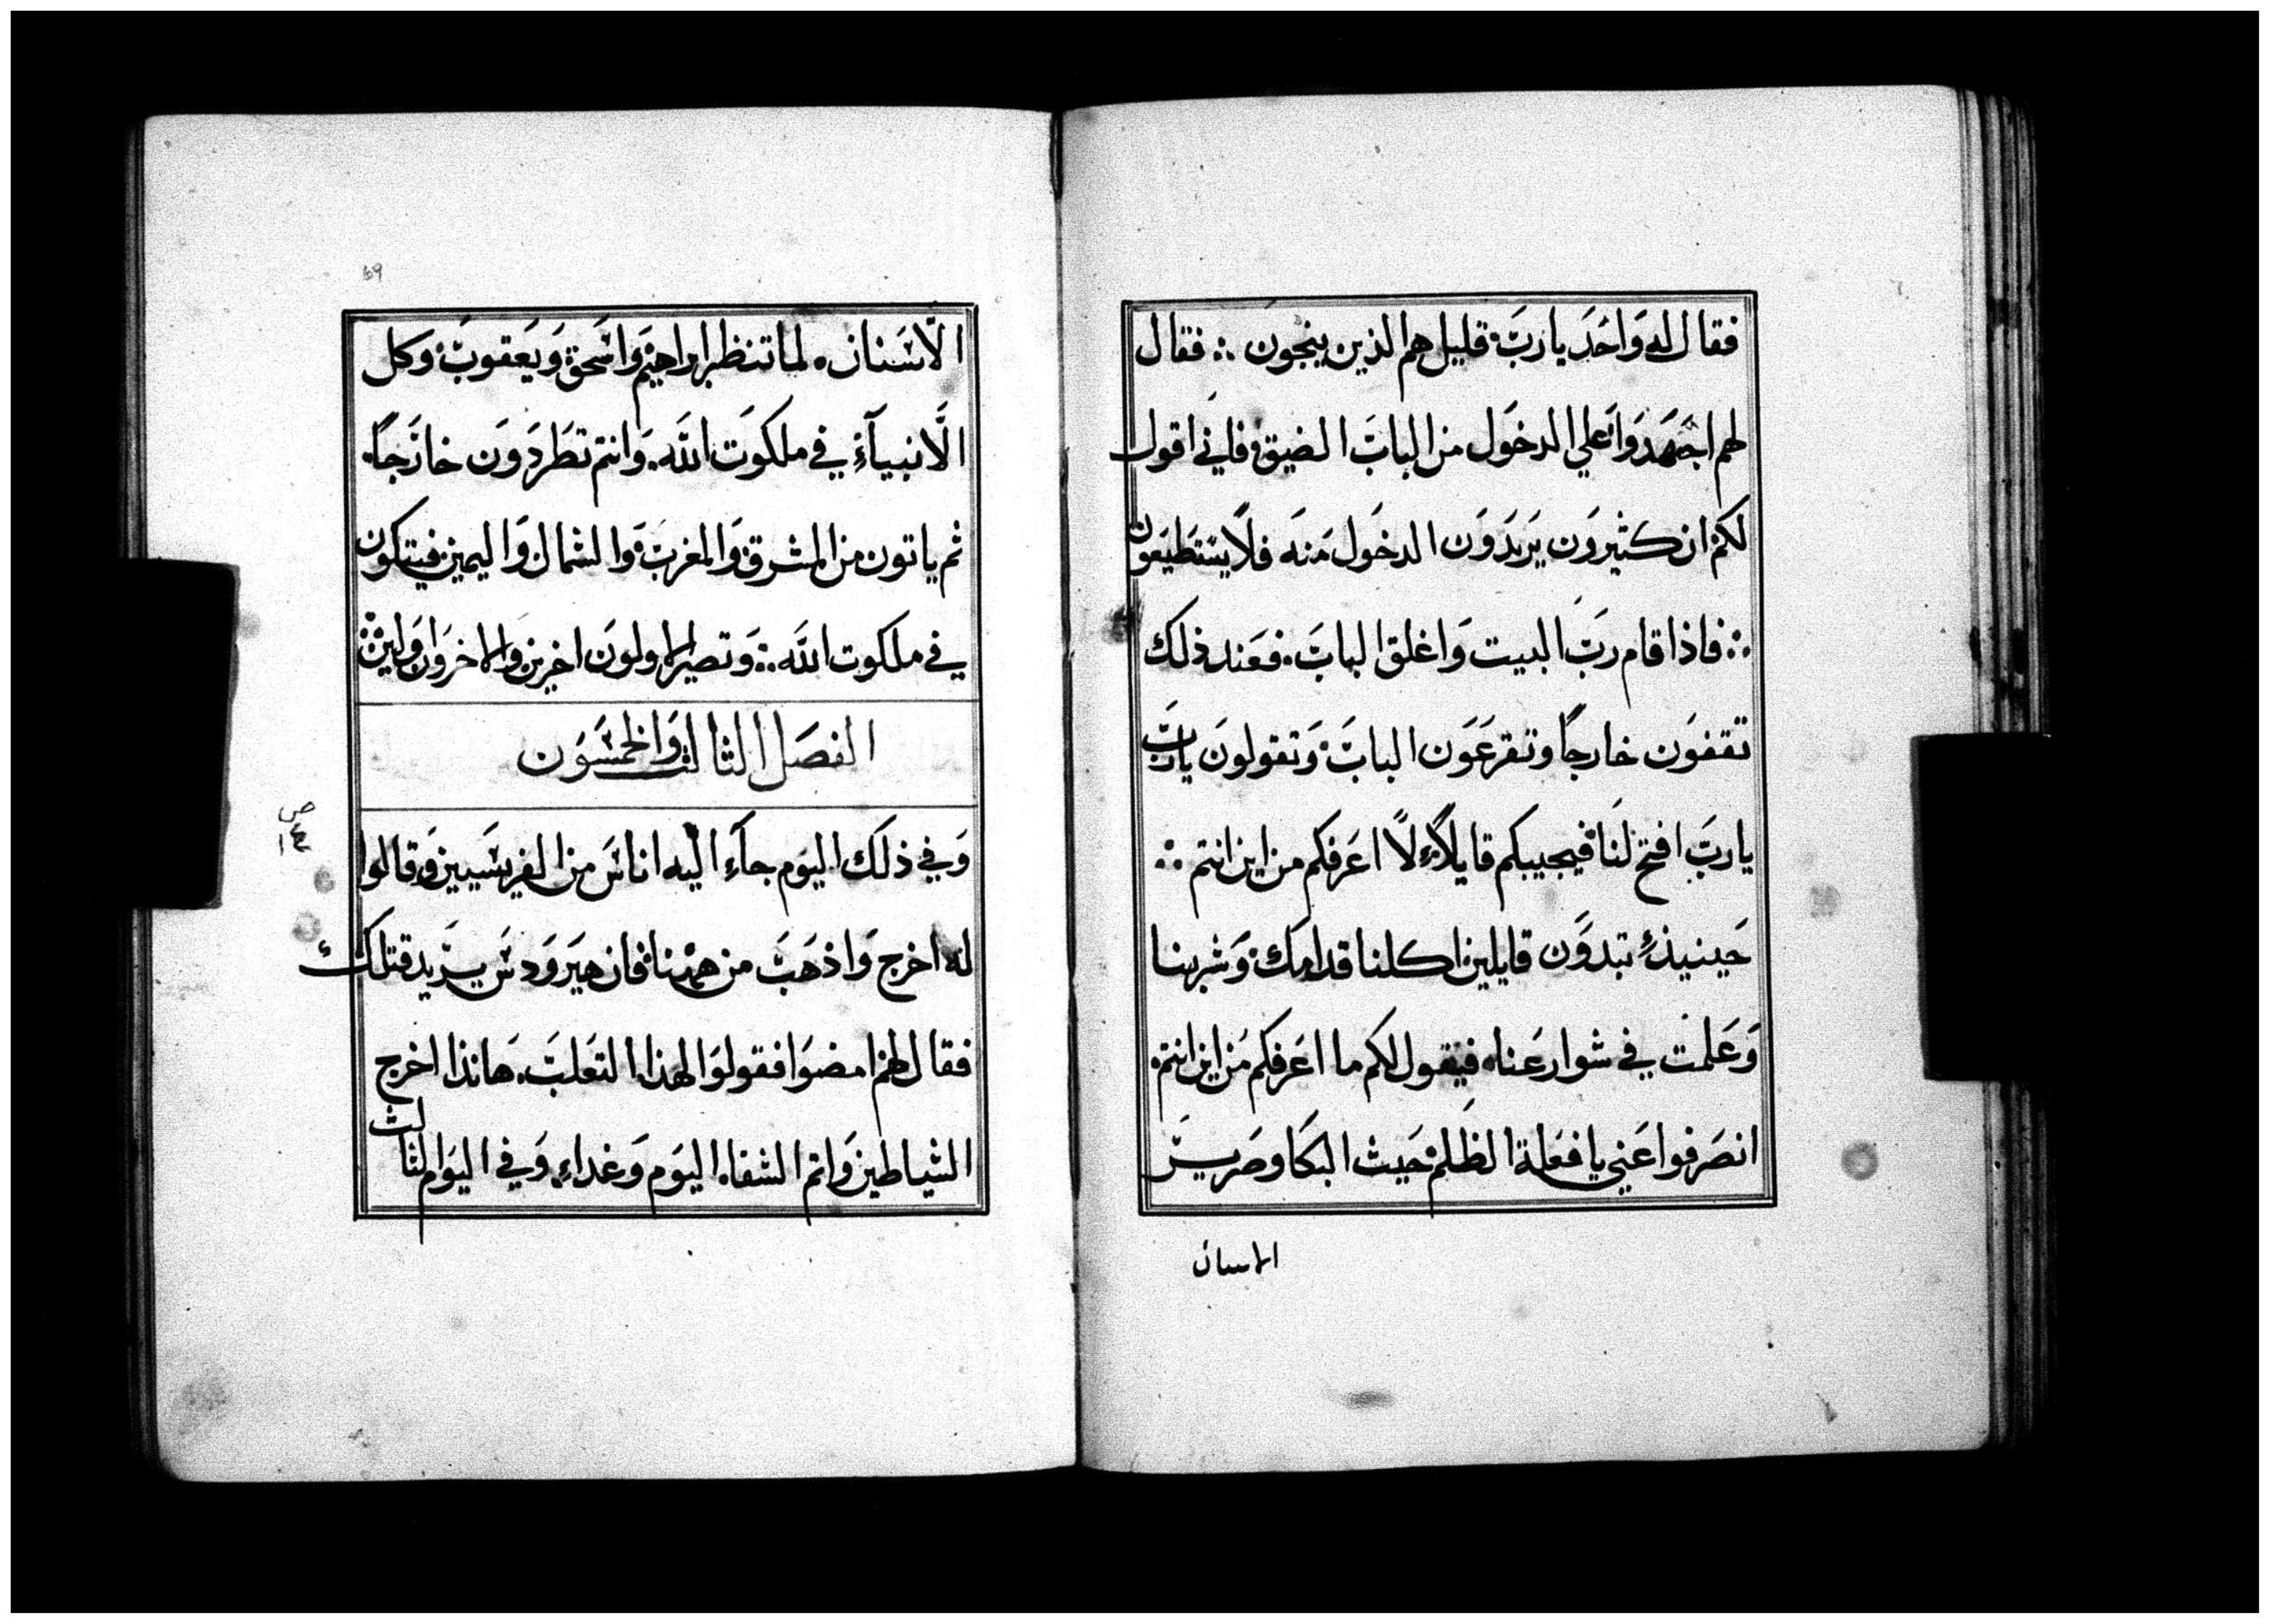 فقال له وَاحَد يا ربَ قليل هم الذين ينجون ∴ فقال
لهم اجتهَدوا عَلي الدخَول من البابَ الضيق فاني اقول
لكم ان كثيروَن يَريَدوَن الدخَول مَنهَ فلَا يسَتطيَعون
∴ فاذا قام ربَ البيت وَاغلق البابَ. فعَند ذلك
تقفوَن خارجًا وتقرعَوَن البابَ وَتقولونَ ياربَ
ياربَ افتح لنَا فيجيبكم قايلًا لًا اعَرفكم من اين انتم ∴
حَينيذٍ تبدوَن قايلين اكلنا قدامك وَشربنا
وَعَلمت في شوارعَنا. فيقول لكم ما اعَرفكم مَن اين انتم.
انصَرفوا عَني يا فعَلة الظَلم حَيث البكَا وصَرير
الاسنان
69
الَاسَنان. لما تنظر ابراهيَم وَاسَحق وَيعَقوبَ وكل
الَانبيآءِ في ملكوَت اللَه. وَانتم تطَردَوَن خارَجًا.
ثم ياتون من المشرق وَالمغربَ وَالشمال وَاليمين فيتكون
في ملكوت اللَه ∴ وَتصير الاولونَ اخرين والاخروَن اوَلين ∴
الفصَل الثالث وَالخمسَوَن
ص
١٤
وَفي ذلَك اليوَم جاَء اليه اناسَ من الفريسَيين وَقالوا
له اخرج وَاذهَبَ من ههنا فان هيَروَدسَ يرَيد قتلك
فقال لهم امضوَا فقولوَا لهذا التعَلبَ. هَانذا اخرج
الشياطين وَاتم الشفا. اليوَم وَغداء. وَفي اليوَم الثالث